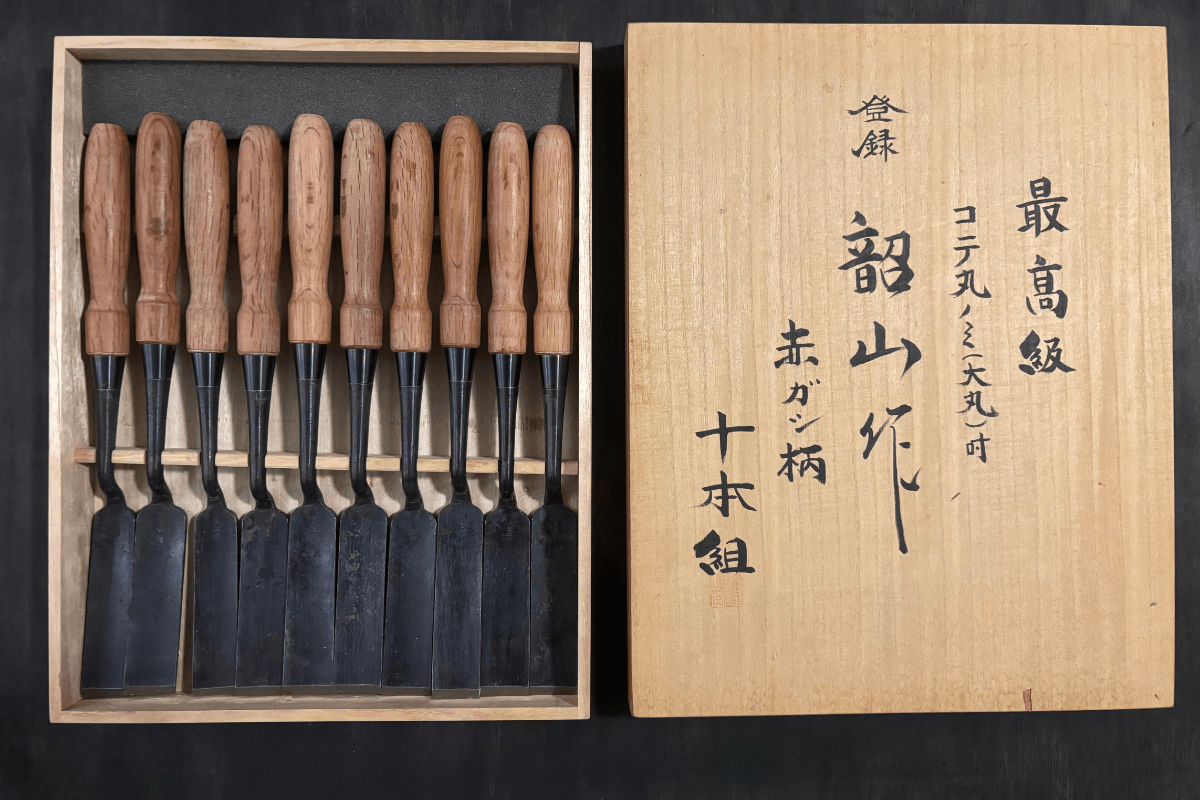 最高級
コテ丸ノミ(大丸)吋
登録
韶山作
赤ガシ柄
十本組